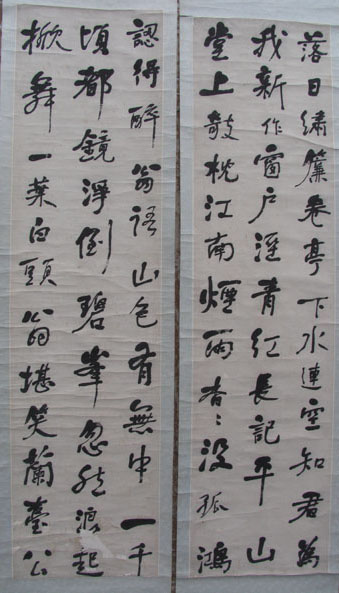 落日繡簾卷亭下水連空知君為
我新作窗戶溼青紅長記平山
堂上敧枕江南煙雨杳〻沒孤鴻
認得醉翁語山色有無中一千
頃都鏡淨倒碧峯忽然浪起
掀舞一葉白頭翁堪笑蘭臺公